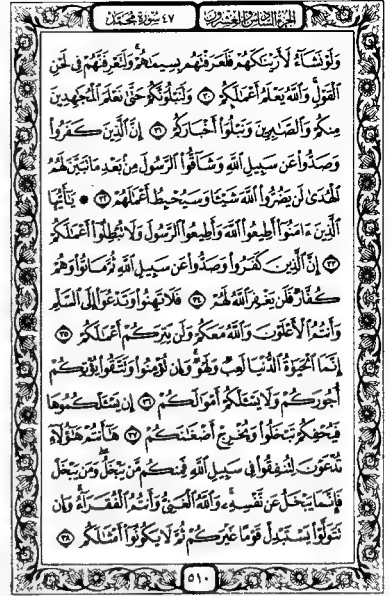 الجزء السادس والعشرون ٤٧ سورة محمد
وَلَوْ نَشَآءُ لَأَرَيْنَٰكَهُمْ فَلَعَرَفْتَهُم بِسِيمَٰهُمْ وَلَتَعْرِفَنَّهُمْ فِى لَحْنِ
ٱلْقَوْلِ وَٱللَّهُ يَعْلَمُ أَعْمَٰلَكُمْ ٣٠ وَلَنَبْلُوَنَّكُمْ حَتَّىٰ نَعْلَمَ ٱلْمُجَٰهِدِينَ
مِنكُمْ وَٱلصَّٰبِرِينَ وَنَبْلُوَا۟ أَخْبَارَكُمْ ٣١ إِنَّ ٱلَّذِينَ كَفَرُوا۟
وَصَدُّوا۟ عَن سَبِيلِ ٱللَّهِ وَشَآقُّوا۟ ٱلرَّسُولَ مِنۢ بَعْدِ مَا تَبَيَّنَ لَهُمُ
ٱلْهُدَىٰ لَن يَضُرُّوا۟ ٱللَّهَ شَيْـًٔا وَسَيُحْبِطُ أَعْمَٰلَهُمْ ٣٢ * يَٰٓأَيُّهَا
ٱلَّذِينَ ءَامَنُوٓا۟ أَطِيعُوا۟ ٱللَّهَ وَأَطِيعُوا۟ ٱلرَّسُولَ وَلَا تُبْطِلُوٓا۟ أَعْمَٰلَكُمْ
٣٣ إِنَّ ٱلَّذِينَ كَفَرُوا۟ وَصَدُّوا۟ عَن سَبِيلِ ٱللَّهِ ثُمَّ مَاتُوا۟ وَهُمْ
كُفَّارٌ فَلَن يَغْفِرَ ٱللَّهُ لَهُمْ ٣٤ فَلَا تَهِنُوا۟ وَتَدْعُوٓا۟ إِلَى ٱلسَّلْمِ
وَأَنتُمُ ٱلْأَعْلَوْنَ وَٱللَّهُ مَعَكُمْ وَلَن يَتِرَكُمْ أَعْمَٰلَكُمْ ٣٥
إِنَّمَا ٱلْحَيَوٰةُ ٱلدُّنْيَا لَعِبٌ وَلَهْوٌ وَإِن تُؤْمِنُوا۟ وَتَتَّقُوا۟ يُؤْتِكُمْ
أُجُورَكُمْ وَلَا يَسْـَٔلْكُمْ أَمْوَٰلَكُمْ ٣٦ إِن يَسْـَٔلْكُمُوهَا
فَيُحْفِكُمْ تَبْخَلُوا۟ وَيُخْرِجْ أَضْغَٰنَكُمْ ٣٧ هَٰٓأَنتُمْ هَٰٓؤُلَآءِ
تُدْعَوْنَ لِتُنفِقُوا۟ فِى سَبِيلِ ٱللَّهِ فَمِنكُم مَّن يَبْخَلُ وَمَن يَبْخَلْ
فَإِنَّمَا يَبْخَلُ عَن نَّفْسِهِۦ وَٱللَّهُ ٱلْغَنِىُّ وَأَنتُمُ ٱلْفُقَرَآءُ وَإِن
تَتَوَلَّوْا۟ يَسْتَبْدِلْ قَوْمًا غَيْرَكُمْ ثُمَّ لَا يَكُونُوٓا۟ أَمْثَٰلَكُم ٣٨
٥١٠